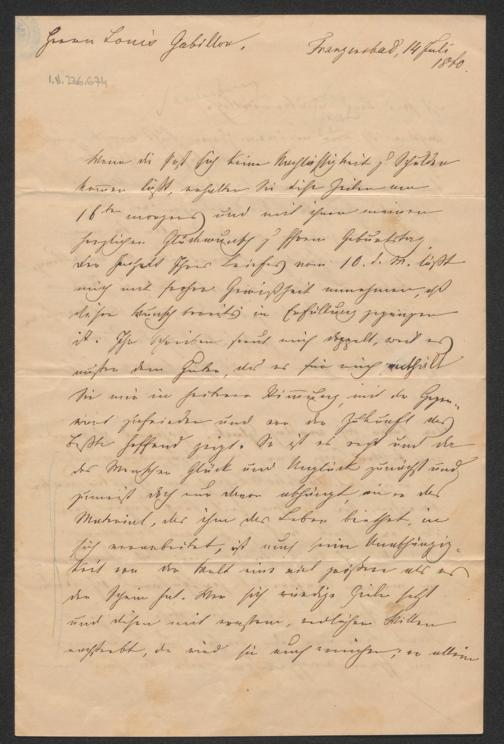 Herrn Louis Gabillon.
Franzensbad, 14 Juli
1880.
I.N. 226.674
Wenn die Post sich keine Nachlässigkeit z' Schulden
kommen läßt, erhalten Sie diese Zeilen am
16ten morgens und mit ihnen meinen
herzlichen Glückwunsch z' Ihrem Geburtstag.
Der Inhalt Ihres Briefes vom 10. d. M. läßt
mich mit froher Gewißheit annehmen, daß
dieser Wunsch bereits in Erfüllung gegangen
ist. Ihr Schreiben freut mich doppelt, weil es
außer dem Guten, das es für mich enthält
Sie mir in heiterer Stimmung, mit der Gegen-
wart zufrieden und von der Zukunft das
Beste hoffend zeigt. So ist es recht und da
des Menschen Glück und Unglück zunächst und
zumeist doch nur davon abhängt, wie er das
Material, das ihm das Leben biethet, in
sich verarbeitet, ist auch seine Unabhängig-
keit von der Welt eine viel größere als es
den Schein hat. Wer sich würdige Ziele setzt
und diesen mit ernstem, redlichen Willen
nachstrebt, der wird sie auch erreichen; er allein